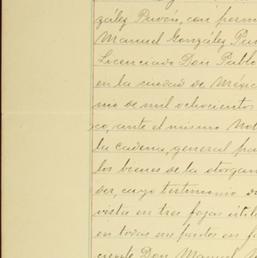 zález Pavón, con perm
Manuel González Pa
Licenciado Don Pablo
en la ciudad de Méxic
mio de mil ochocientos
co, ante el mismo Not
la cadena, general pa
los bienes de la otorgan
der, cuyo testimonio d
vista en tres fojas útile
en todas sus partes en f
ciente Don Manuel